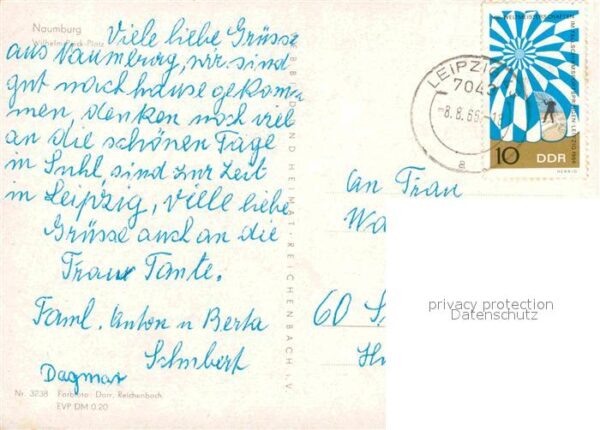 Naumburg
Wilhelm-Pieck-Platz
Viele liebe Grüsse
aus Naumburg, wir sind
gut nach hause gekom-
men, denken noch viel
an die schönen Tage
in Suhl, sind zur Zeit
in Leipzig, viele liebe
Grüsse auch an die
Frau Tante.
Faml. Anton u Berta
Schubert
Dagmar
Nr. 3238 Farbfoto: Darr, Reichenbach
EVP DM 0.20
BILD UND HEIMAT · REICHENBACH I. V.
LEIPZIG
7042
-8.8.66.-18
a
WELTMEISTERSCHAFTEN IM FALLSCHIRMSPRINGEN LEIPZIG 1966
10 DDR
An Frau
Wa
60 S
privacy protection
Datenschutz